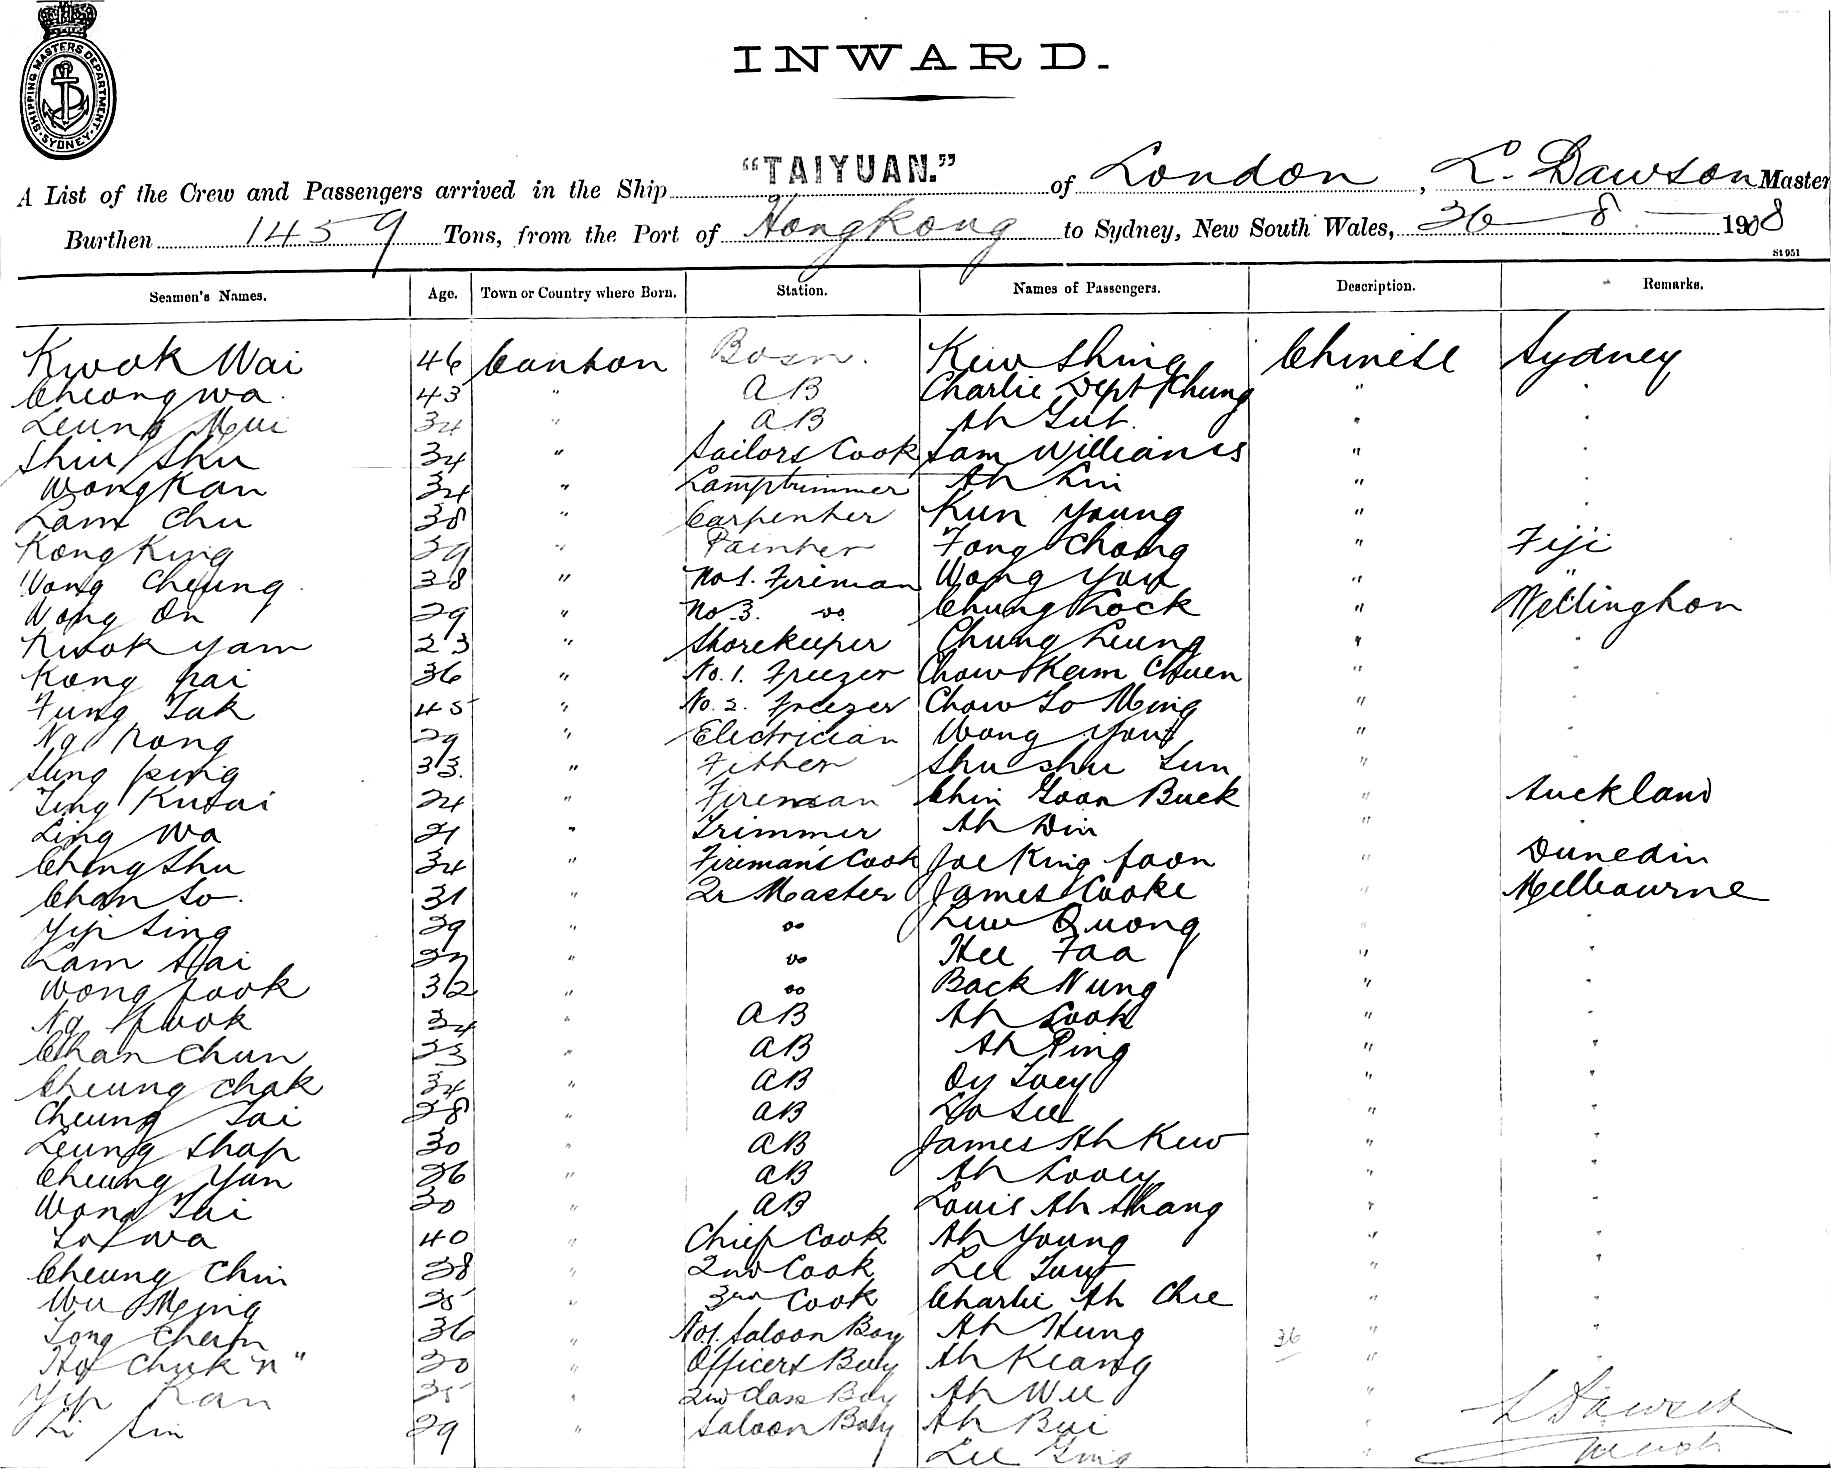 SHIPPING MASTERS DEPARTMENT. SYDNEY.
INWARD.
A List of the Crew and Passengers arrived in the Ship "TAIYUAN." of London, L. Dawson Master
Burthen 1459 Tons, from the Port of Hongkong to Sydney, New South Wales, 8 1908
St 951
Seamen's Names. Age. Town or Country where Born. Station. Names of Passengers. Description. Remarks.
Kwok Wai 46 Canton Bosn. Kew Shing Chinese Sydney
Cheong Wa. 43 " AB Charlie Chung "
Leung Mui 34 " AB Ah Gut "
Shiu Shu 34 " Sailors Cook Sam Williams "
Wong Kan 34 " Lamptrimmer Ah Lin "
Lam Chu 38 " Carpenter Kun Young "
Kong King 39 " Painter Fong Chong " Fiji
Wong Cheung 38 " No 1. Fireman Wong You " "
Wong On 29 " No 3. do Chung Hock " Wellington
Kwok Yam 23 " Storekeeper Chung Leung "
Kong Hai 36 " No. 1. Freezer Chow Kem Chuen "
Fung Tak 45 " No. 2. Freezer Chow So Ming "
Ng Hong 29 " Electrician Wong You "
Sung Ping 33. " Fitter Shu Shu Sun "
Ting 24 " Fireman Chin Goon Buck " Auckland
Ling Wa 21 " Trimmer Ah Din "
Ching Shu 34 " Fireman's Cook Joe King Foon " Dunedin
Chan So. 31 " Qr Master James Cooke " Melbourne
Yip Sing 39 " do Luw Quong "
Lam Hai " do Hee Faa "
Wong Fook 32 " do Back Nung "
Ng Fwok 34 " AB Ah Look "
Chan Chun 33 " AB Ah Ping "
Sheung Chak 34 " AB Oy Tuey "
Cheung Tai 28 " AB Lo See "
Leung Shap 30 " AB James Ah Kew "
Cheung Yun 26 " AB Ah Looey "
Wong Tai 30 " AB Louis Ah Shang "
So Wa 40 " Chief Cook Ah Young "
Cheung Chin 38 " 2nd Cook Lee "
Wu Ming 35 " 3rd Cook Charlie Ah Chee "
Tong Cheun 36 " No1. Saloon Boy Ah Hung 36 "
Ho Chuk "n" 30 " Officers Boy Ah Keang "
Yip Han 35 " 2nd Class Boy Ah Wee "
Li Sin 29 " Saloon Boy Ah Bui "
Lee Ging "
L Dawson